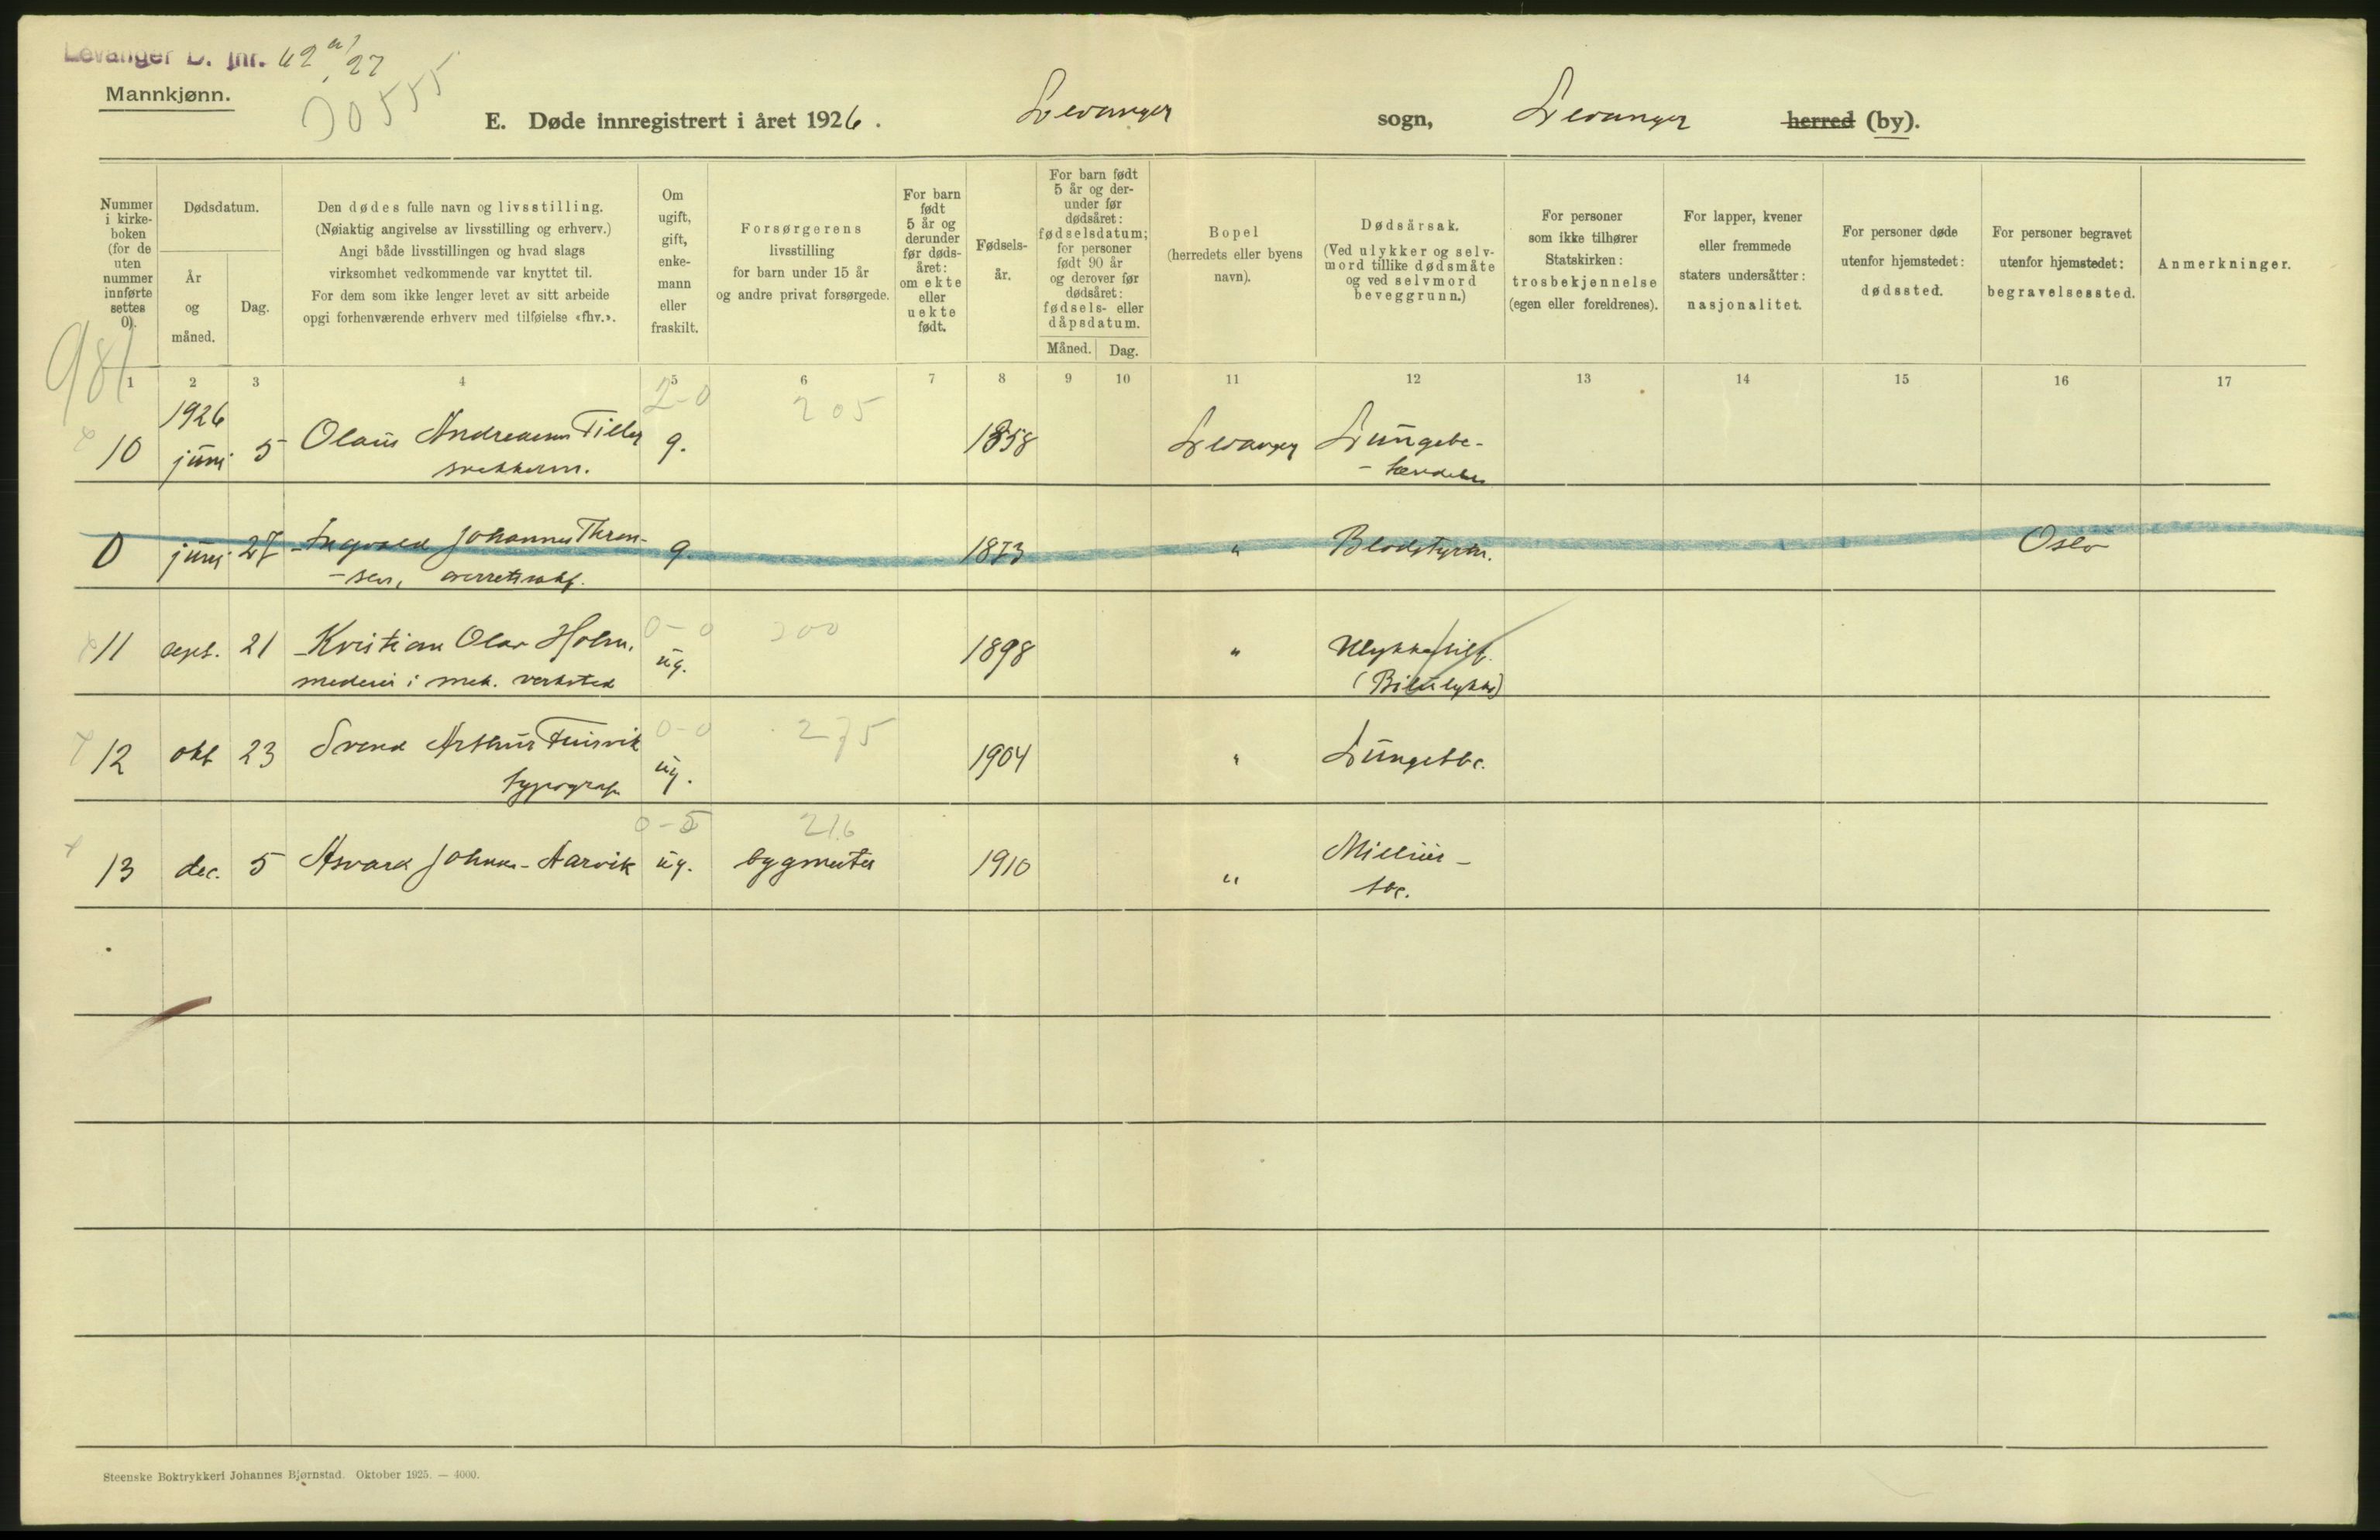 Levanger D. jnr. 42 a/27
Mannkjønn.
30555
E. Døde innregistrert i året 1926. Levanger sogn, Levanger herred (by).
Nummer i kirkeboken (for de uten nummer innførte settes 0).
Dødsdatum.
År og måned.
Dag.
Den dødes fulle navn og livsstilling.
(Nøiaktig angivelse av livsstilling og erhverv.)
Angi både livsstillingen og hvad slags
virksomhet vedkommende var knyttet til.
For dem som ikke lenger levet av sitt arbeide
opgi forhenværende erhverv med tilføielse «fhv.».
Om ugift, gift, enkemann eller fraskilt.
Forsørgerens
livsstilling
for barn under 15 år
og andre privat forsørgede.
For barn født 5 år og derunder før dødsåret: om ekte eller uekte født.
Fødselsår.
For barn født 5 år og derunder før dødsåret: fødselsdatum; for personer født 90 år og derover før dødsåret: fødsels- eller dåpsdatum.
Måned. Dag.
Bopel
(herredets eller byens
navn).
Dødsårsak.
(Ved ulykker og selvmord tillike dødsmåte og ved selvmord beveggrunn.)
For personer
som ikke tilhører
Statskirken:
trosbekjennelse
(egen eller foreldrenes).
For lapper, kvener
eller fremmede
staters undersåtter:
nasjonalitet.
For personer døde
utenfor hjemstedet:
dødssted.
For personer begravet
utenfor hjemstedet:
begravelsessted.
Anmerkninger.
981
1 2 3 4 5 6 7 8 9 10 11 12 13 14 15 16 17
1926 2-0 205
10 juni 5 Olaus Andreasen Tiller g. 1858 Levanger Lungebe-
snekkerm. -tendelse
0 juni 27 Ingvald Johannes Thron- g. 1873 " Blodstyrtn. Oslo
-sen, overretssakf.
0-0 300
11 sept. 21 Kristian Olav Holm, ug. 1898 " Ulykkestilf.
smedsv. i mek. verksted (Bilulykke)
0-0 275
12 okt 23 Svend Arthur ug. 1904 " Lungetbc.
typograf
0-5 216
13 dec. 5 Asvard Johnsen Aarvik ug. bygmester 1910 " Milliær-
tbc.
Steenske Boktrykkeri Johannes Bjørnstad. Oktober 1925. — 4000.